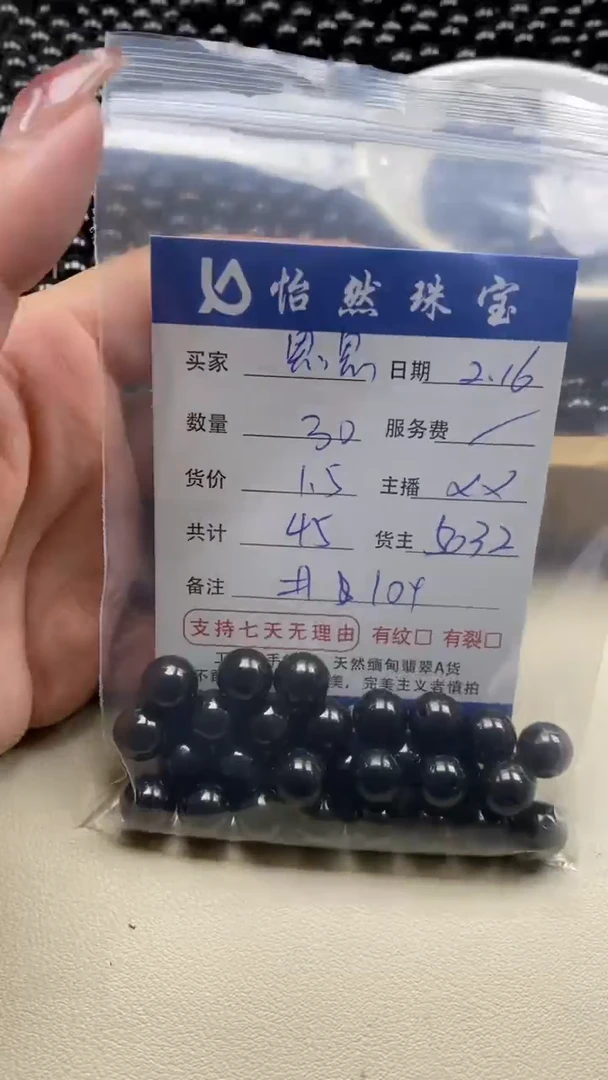 怡然珠宝
买家 恩恩 日期 2.16
数量 30 服务费 /
货价 1.5 主播
共计 45 货主 5032
备注 104
支持七天无理由 有纹□ 有裂□
天然缅甸翡翠A货
美,完美主义者慎拍